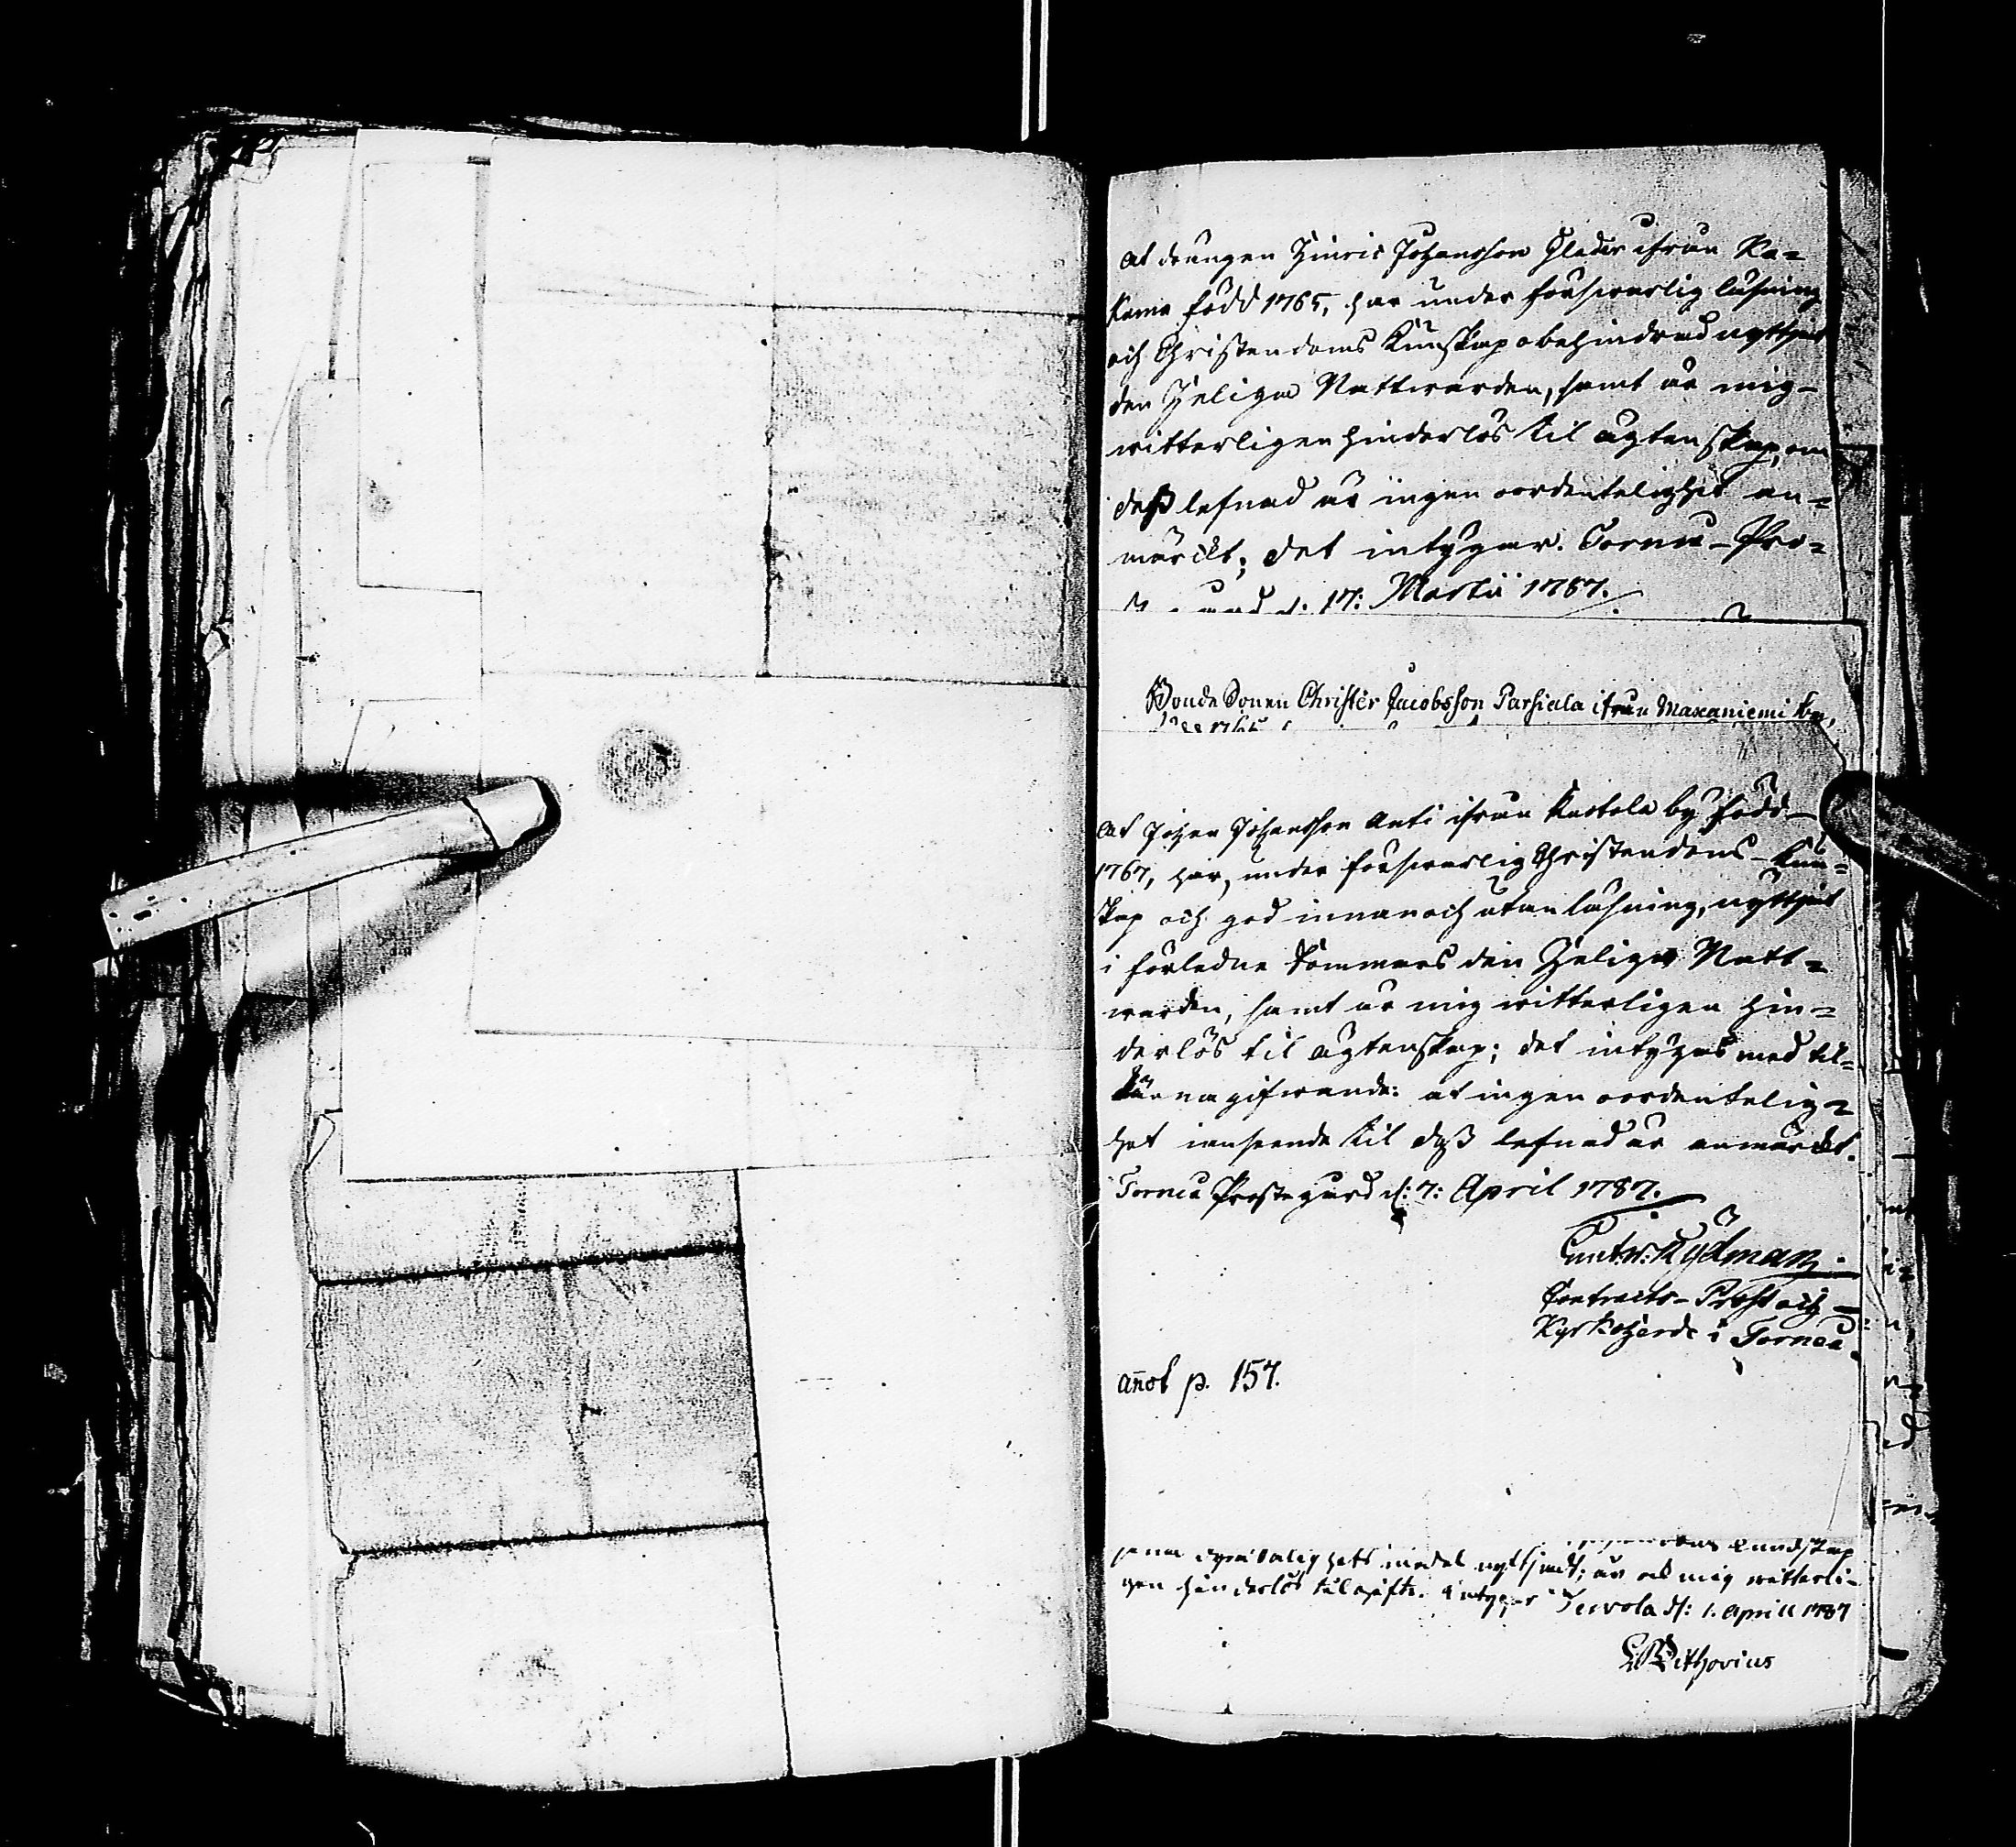 At drängen Hinric Johansson Glader ifrån Ka=
kama född 1765, har under försvarlig läsning
och Christendoms Kunskap obehindrad nyttjat
den Heliga Nattwarden, samt är mig
witterligen hinderlös til ägtenskap, om
dess lefnad är ingen oordentelighet an=
märckt; det intygar. Torneå Pro=
d. 17: Martii 1787.
Bonde Sonen Christer Jacobsson Parsiala ifrån Maxaniemi by,
1765
At Johan Johansson Anti ifrån Kastola by född
1767, har, under försvarlig Christendoms Kun=
skap och god innan och utan läsning, nyttjat
i förledne sommars den Heliga Natt=
warden, samt är mig witterligen hin=
derlös til ägtenskap; det intygas med til=
kännagifwande: at ingen oordentelig=
het i anseende til dess lefnad är anmärckt.
Torneå Prostegård d: 7: April 1787.
Rydman
Contracts-Prost och
Kyrkoherde i Torneå.
añot p. 157.
Kundskap
salighets medel nyttjandt; är ock mig witterli-
gen hinderlös til gifte. Intygar Tervola d: 1. April 1787